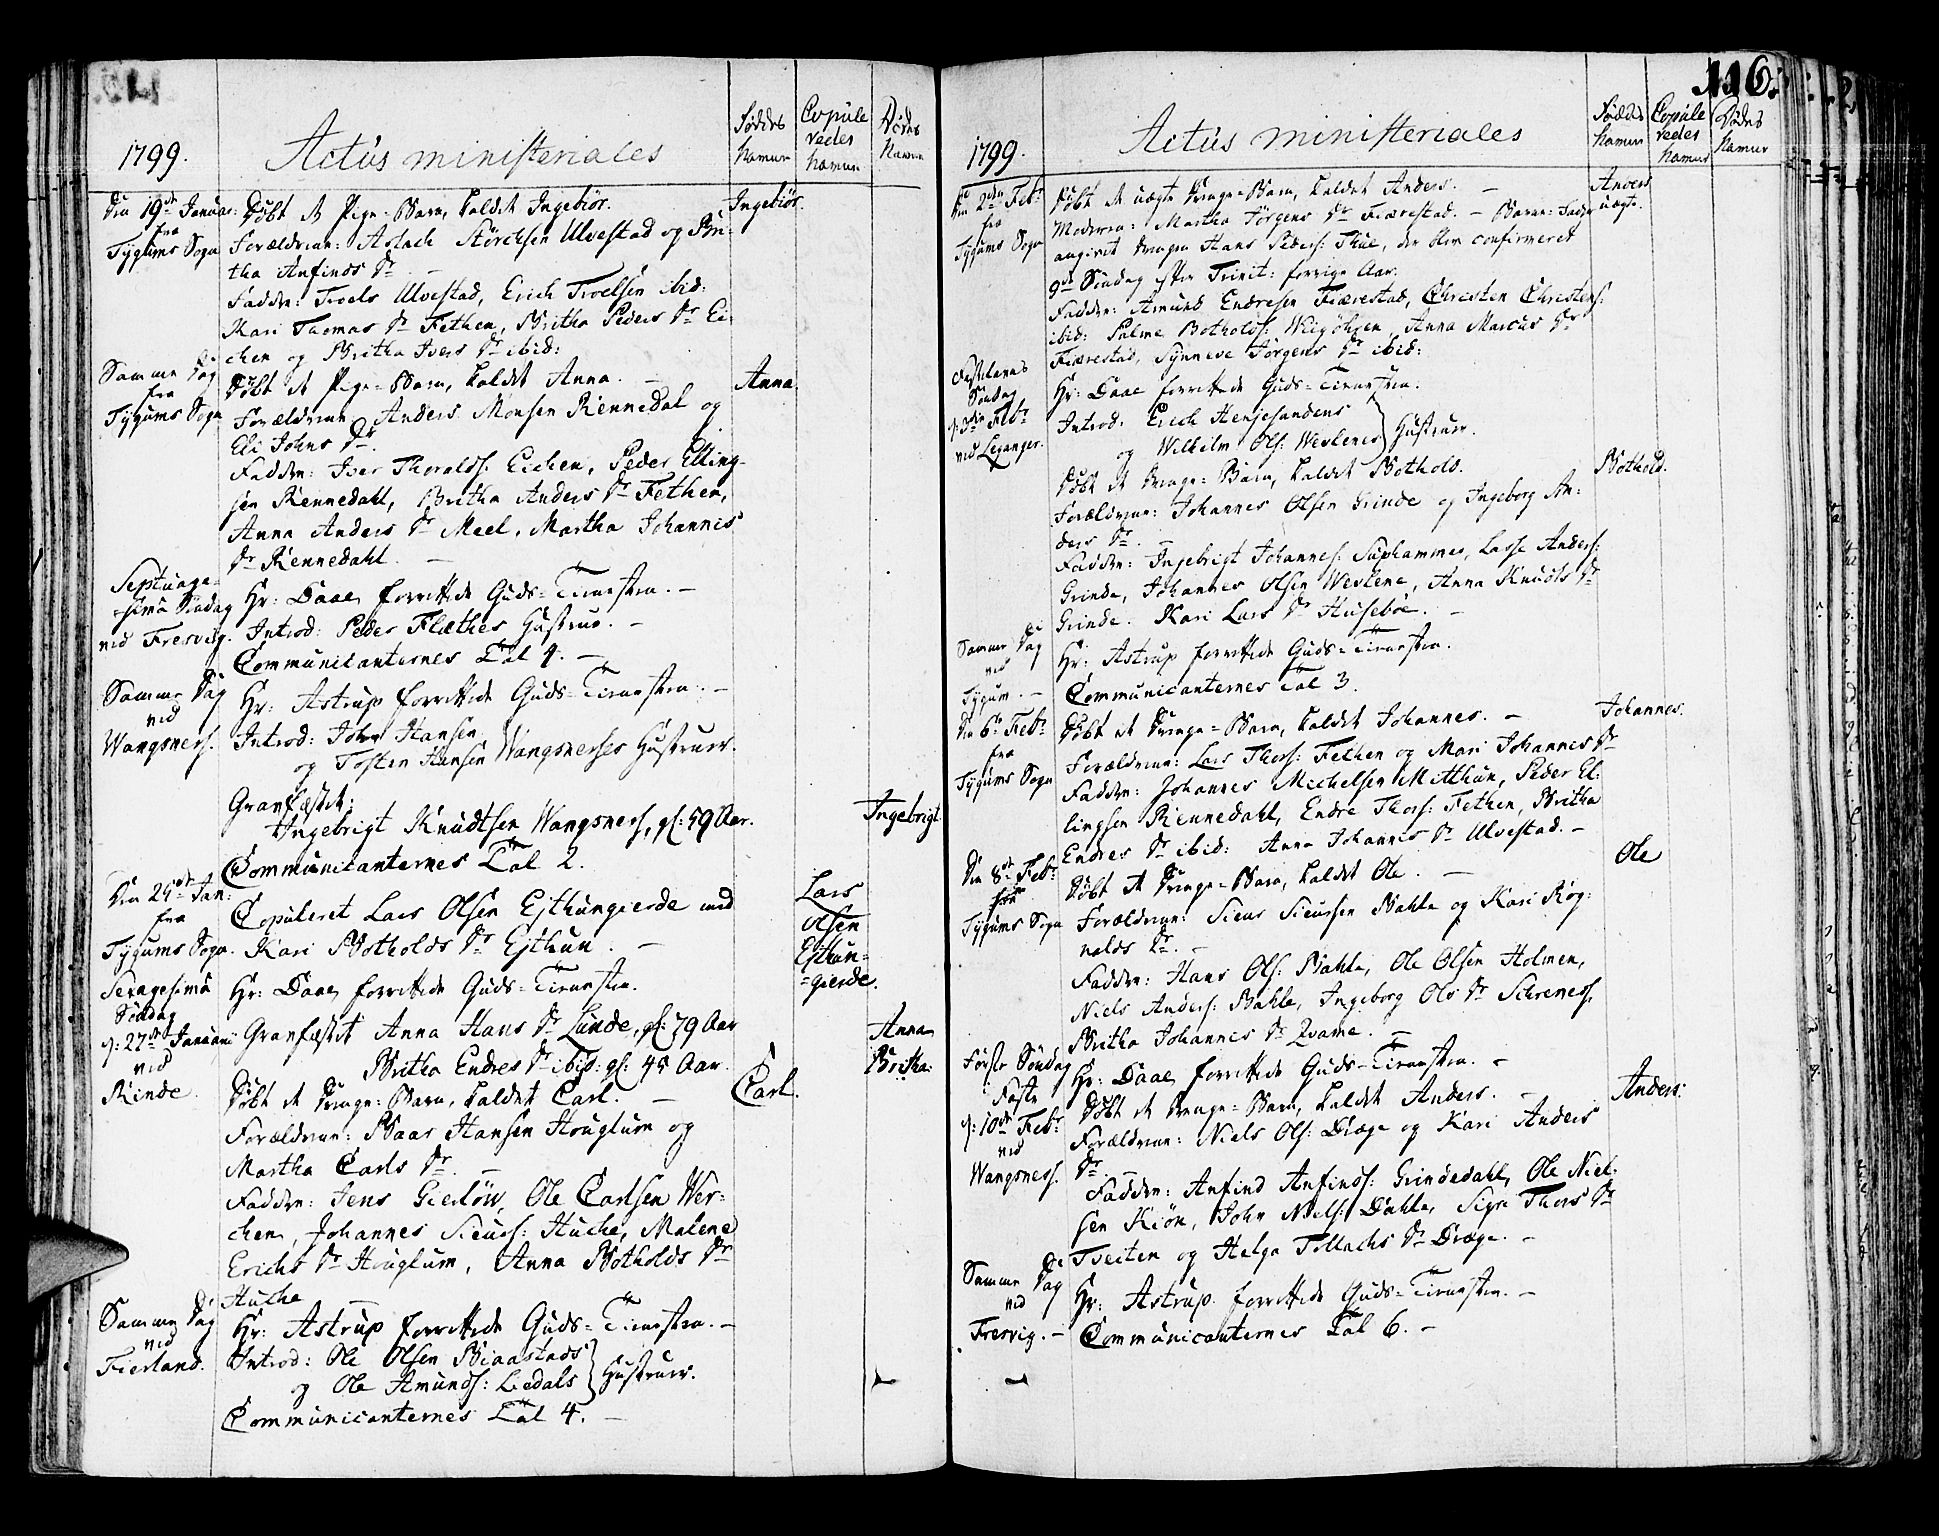 1799. Actus ministeriales
Fødtes Navne
Copuleredes Navne
Dødes Navne
Din 19de Januar: fra Tygums Sogn
Døbt et Pige-Barn, kaldet Ingebiør. Ingebiør.
Forældrene: Aslach Størchsen Ulvestad og Bri-
tha Anfinds Dr. –
Faddere: Troels Ulvestad, Erich Troelsen ibid:
Kari Thomas Dr Fethen, Britha Peders Dr Ei-
chen og Britha Ivers Dr ibid:
Samme Dag fra Tygums Sogn
Døbt et Pige-Barn, kaldet Anna. – Anna.
Forældrene Anders Monsen Rennedal og
Eli Johns Dr.
Faddere: Iver Thoralds: Eichen, Peder Elling-
sen Rennedahl, Britha Anders Dr Fethen,
Anna Anders Dr Meel, Martha Johannis
Dr Rennedahl. –
Septuage-
sima Søndag
vid Fresvig.
Hr: Daae forrettede Guds-Tienesten. –
Introd: Peder Flæthes Hustrue. –
Communicanternes Tal 4. –
Samme Dag vid Wangsness.
Hr: Astrup forrettede Guds-Tienesten. –
Introd: John Hansen
og Tosten Hansen Wangsneses Hustruer.
Græsfæstet:
Ingebrigt Knudtsen Wangsness, gl: 59 Aar. Ingebrigt
Communicanternes Tal 2.
Din 25de Jan: fra Tygums Sogn.
Copuleret Lars Olsen Ejthungierde med
Kari Botholds Dr Ejthun. –
Lars
Olsen
Ejthun-
gierde.
Sexagesima
Søndag
ɔ: 27de Januarii
vid
Rinde.
Hr: Daae forrettede Guds-Tienesten.
Gravfæstet Anna Hans Dr Lunde, gl: 79 Aar Anna
Britha Endres Dr ibid: gl: 45 Aar. Britha:
Døbt et Drenge-Barn, kaldet Carl. – Carl.
Forældrene: Baar Hansen Houglum og
Martha Carls Dr. –
Faddere: Jens Gierløw, Ole Carlsen Wer-
chen, Johannes Siurs: Huche, Malene
Erichs Dr Houglum, Anna Botholds Dr
Huche
Samme Dag vid Fierland.
Hr: Astrup forrettede Guds-Tienesten. –
Introd: Ole Olsen Biaastads
og Ole Amunds: Liedals Hustruer.
Communicanternes Tal 4. –
116.
1799. Actus ministeriales
Fødtes Navne
Copuleredes Navne
Dødes Navne
Din 2den Febr fra Tygums Sogn
Døbt et uægte Drenge-Barn, kaldet Anders. – Anders
uægte.
Moderen: Martha Jørgens Dr Fiærestad. – Barne-Fader
angivet Drengen Hans Peders: Thue, der blev confirmeret
9de Søndag efter Trinit: forrige Aar.
Faddere: Amund Endresen Fiærestad, Christen Christens:
ibid: Salme Botholds: Wigøhren, Anna Marcus Dr
Fiærestad, Synneve Jørgens Dr ibid:
Fastelavns
Søndag
ɔ: 3die Febr
vid Leganger.
Hr: Daae forrettede Guds-Tienesten.
Introd: Erich Henjesandens
og Wilhelm Ols: Westenes Hustruer.
Døbt et Drenge-Barn, kaldet Bothold. Bothold.
Forældrene: Johannes Olsen Grinde og Ingeborg An-
ders Dr. –
Faddere: Ingebrigt Johannes: Suphammer, Lasse Anders:
Grinde, Johannes Olsen Westene, Anna Knudts Dr
Grinde. Kari Lars Dr Husebøe. –
Samme Dag vid Tygum. –
Hr: Astrup forrettede Guds-Tienesten.
Communicanternes Tal 3.
Din 6te Febr fra Tygums Sogn
Døbt et Drenge-Barn, kaldet Johannes. – Johannes.
Forældrene: Lars Thors: Fethen og Mari Johannis Dr
Faddere: Johannes Michelsen Mitthun, Peder El-
lingsen Rennedahl, Endre Thors: Fethen, Britha
Endres Dr ibid: Anna Johannis Dr Ulvestad. –
Din 8de Febr fra Tygums Sogn
Døbt et Drenge-Barn, kaldet Ole. – Ole
Forældrene: Siur Siursen Bahle og Kari Rog-
nalds Dr. –
Faddere: Hans Ols: Bahle, Ole Olsen Holmen,
Niels Anders: Bahle, Ingeborg Ols Dr Schreness.
Britha Johannis Dr Qvame. –
Første Søndag
i Faste
ɔ: 10de Febr
vid
Wangsness.
Hr: Daae forrettede Guds-Tienesten. –
Døbt et Drenge-Barn, kaldet Anders. – Anders:
Forældrene: Niels Ols: Dræge og Kari Anders
Dr.
Faddere: Anfind Anfinds: Grindedahl, Ole Niel-
sen Kiøn, John Niels: Dahle, Sigri Thors Dr
Tveiten og Helga Tollachs Dr Dræge. –
Samme Dag vid Fresvig. –
Hr: Astrup forrettede Guds-Tienesten. –
Communicanternes Tal 6. –